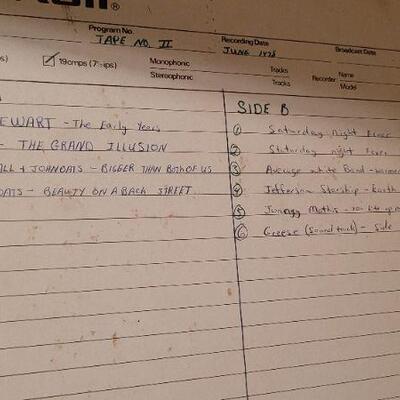 ®
Program No. TAPE NO. II Recording Date JUNE 1978 Broadcast Date
19cmps (7½ips) Monophonic Tracks Recorder Name
Stereophonic Tracks Model
EWART - The Early Years
- THE GRAND ILLUSION
ALL + JOHN OATS - BIGGER THAN BOTH OF US
OATS - BEAUTY ON A BACK STREET
SIDE B
① Saturday Night Fever
② Staturday night Fever
③ Average white Band -
④ Jefferson Starship - Earth
⑤ Mathis - You
⑥ Greese (Sound track) - Side